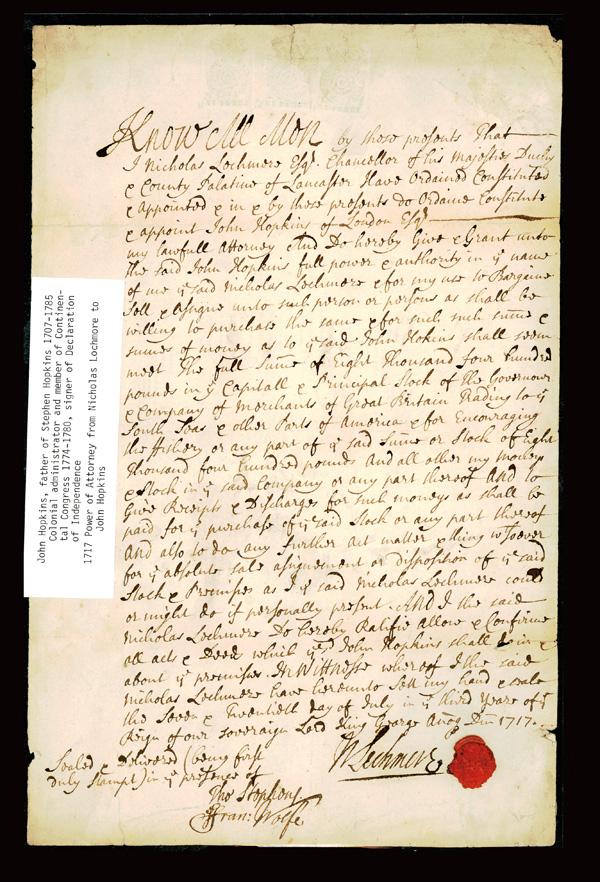 Know All Men by these presents That
I Nicholas Lechmere Esqr. Chancellor of his Majesties Duchy
& County Palatine of Lancaster Have Ordained Constituted
& Appointed & in & by these presents do Ordaine Constitute
& appoint John Hopkins of London Esqr
my lawfull Attorney And Do hereby Give & Grant unto
the said John Hopkins full power & authority in ye name
of me ye said Nicholas Lechmere & for my use to Bargaine
Sell & Assigne unto such person or persons as shall be
willing to purchase the same & for such such sume &
sumes of money as to ye said John Hokins shall seem
meet The full Sume of Eight Thousand four hundred
pounds in ye Capitall & Principal Stock of the Governour
& Company of Merchants of Great Britain Trading to ye
South Seas & other Parts of America & for Encouraging
the Fishery or any part of ye said Sume or Stock of Eight
Thousand four hundred pounds And all other my money
& Stock in ye said Company or any part thereof And to
Give Receipts & Discharges for such moneys as shall be
paid for ye purchase of ye said Stock or any part thereof
And also to do any further Act matter & thing wtsoever
for ye absolute sale assignement or disposition of ye said
Stock & Premisses as I ye said Nicholas Lechmere could
or might do if personally present. And I the said
Nicholas Lechmere Do hereby Ratifie allow & Confirme
all acts & Deeds which ye sd John Hopkins shall do in &
about ye premisses. In Wittnesse whereof I the said
Nicholas Lechmere have hereunto Sett my hand & seale
the Seven & Twentieth day of July in ye third Yeare of ye
Reign of our Sovereign Lord King George Anoq Dm 1717.
Sealed & Delivered (being first
duly stampt) in ye presence of
N Lechmere
Tho Hopkins
Fran: Wolfe
John Hopkins, father of Stephen Hopkins 1707-1785
Colonial administrator and member of Continen-
tal Congress 1774-1780, signer of Declaration
of Independence
1717 Power of Attorney from Nicholas Lochmore to
John Hopkins